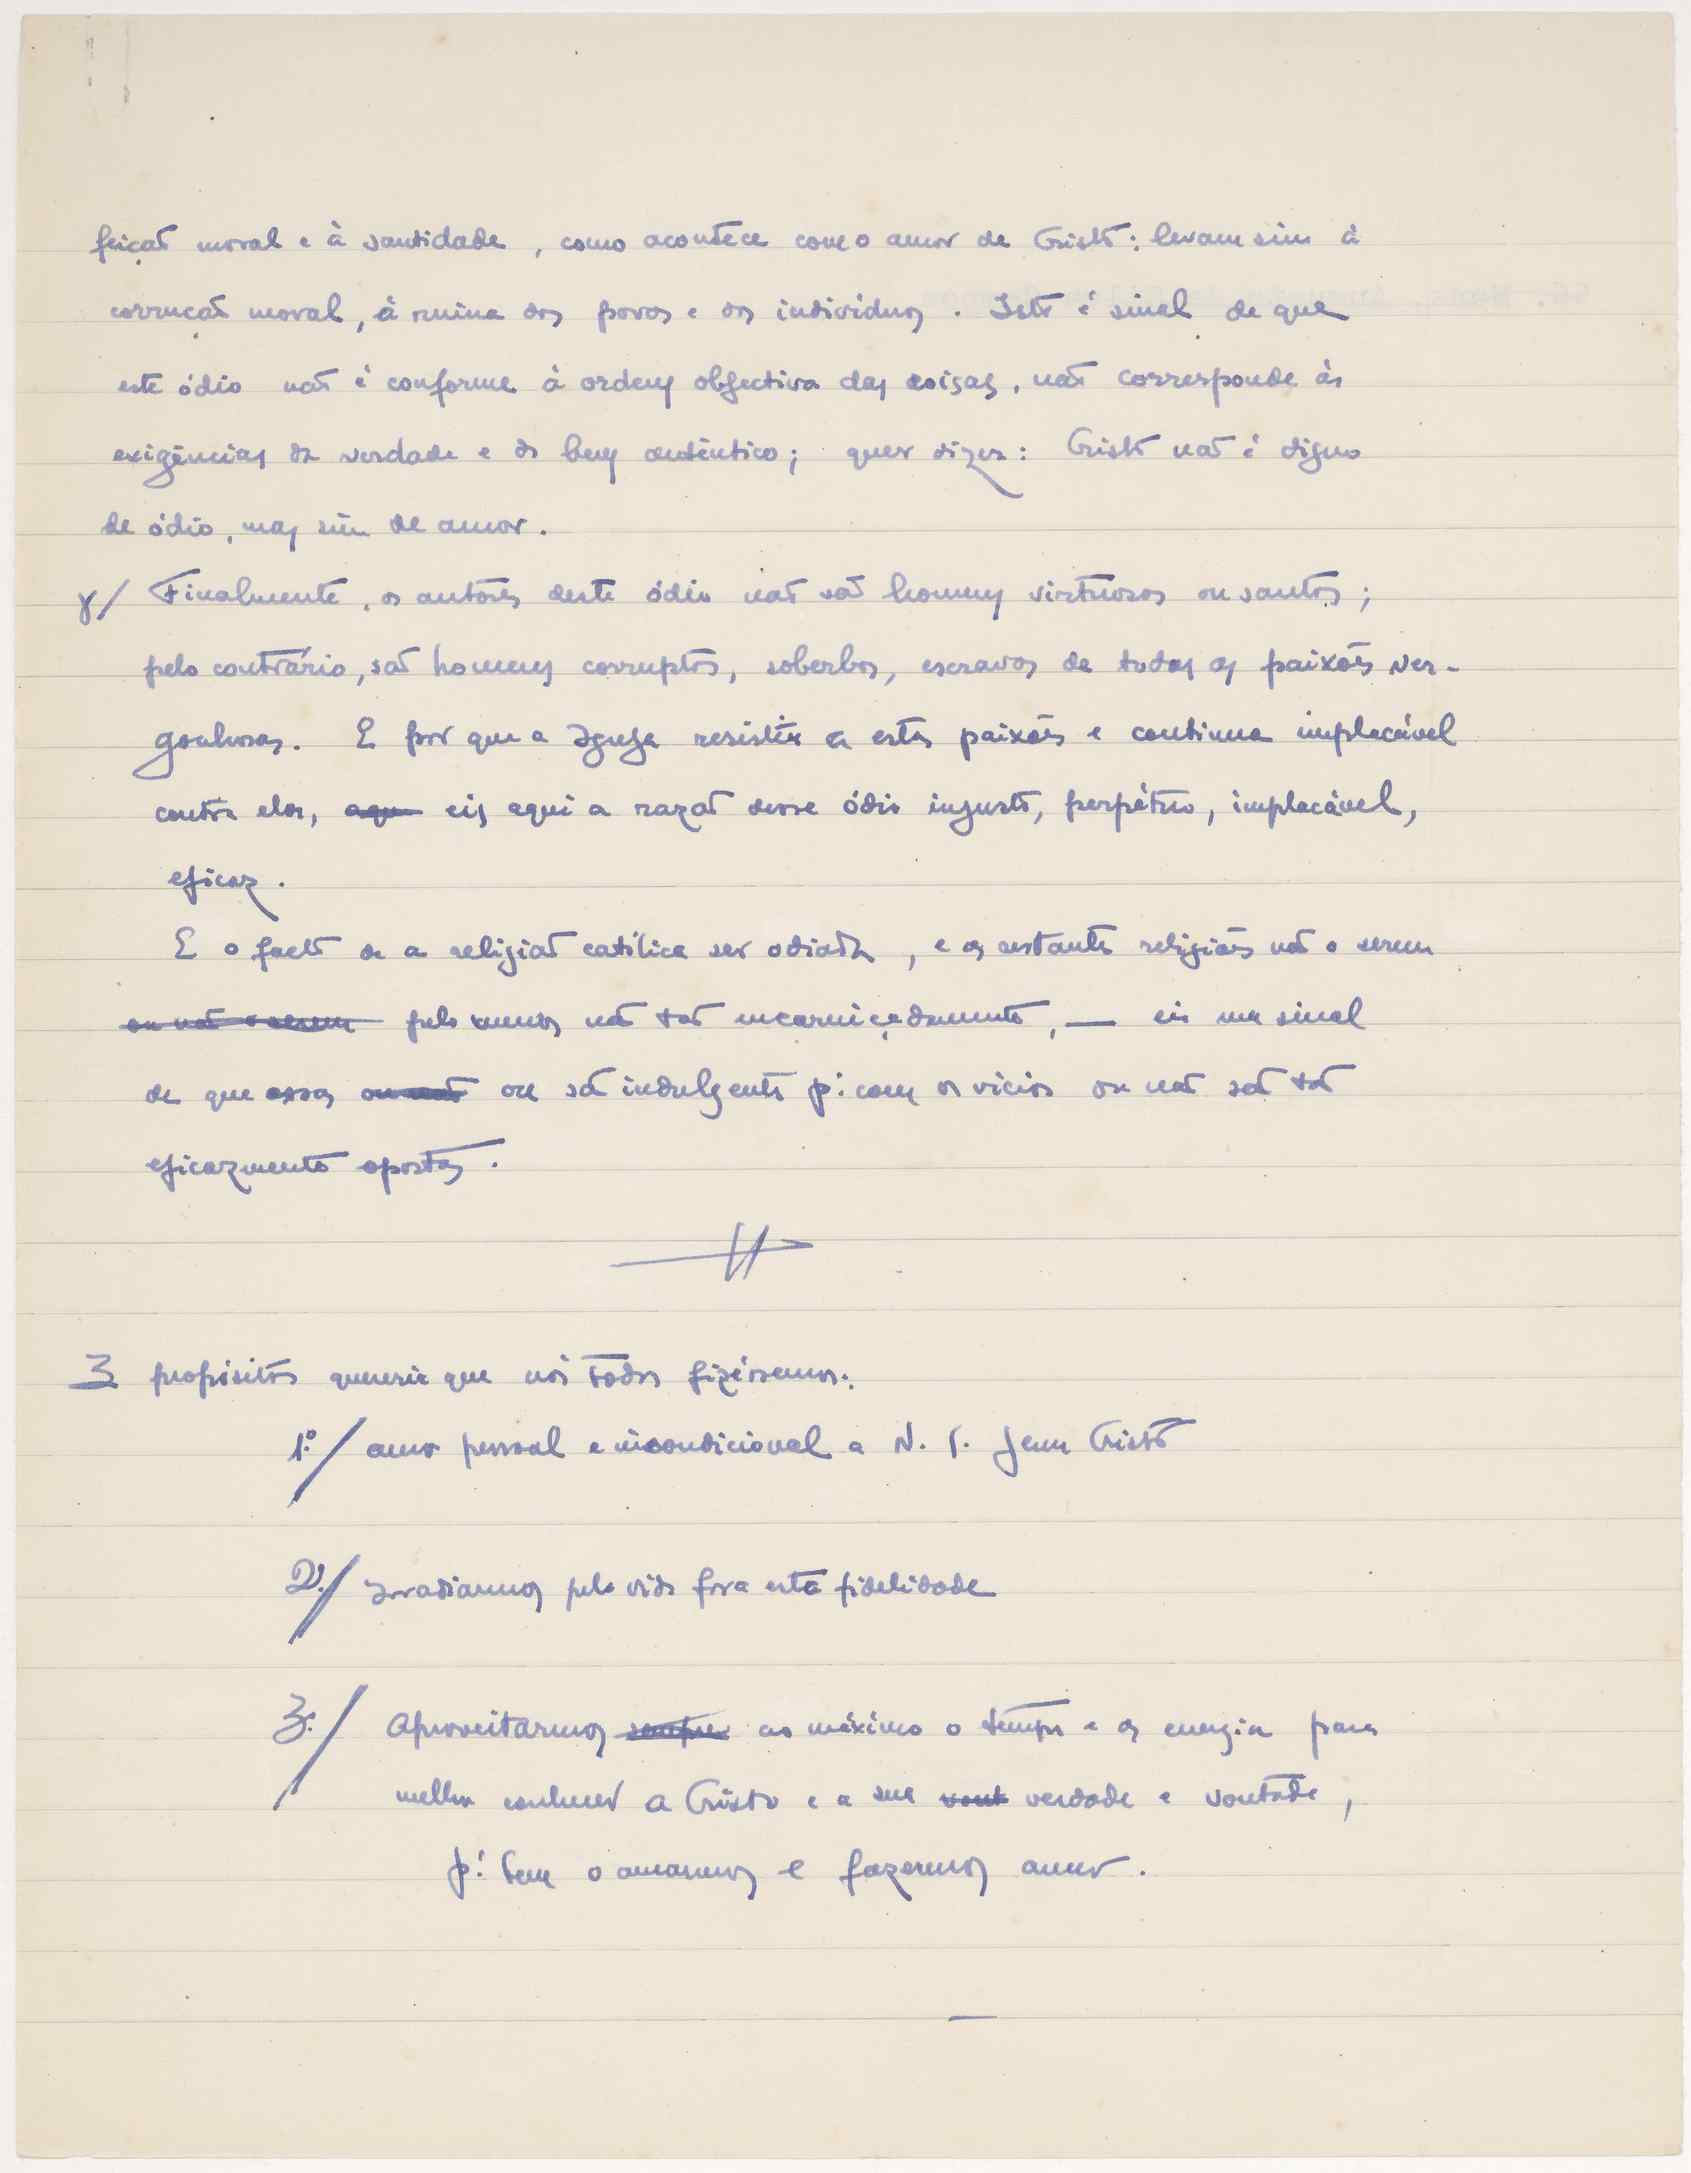 feição moral e à santidade, como acontece com o amor de Cristo: levam sim à
corrução moral, à ruína dos povos e dos indivíduos. Isto é sinal de que
este ódio não é conforme à ordem objectiva das coisas, não corresponde às
exigências da verdade e do bem autêntico; quer dizer: Cristo não é digno
de ódio, mas sim de amor.
γ/ Finalmente, os autores deste ódio não são homens virtuosos ou santos;
pelo contrário, são homens corruptos, soberbos, escravos de todas as paixões ver-
gonhosas. E por que a Igreja resiste a estas paixões e continua implacável
contra elas, aqui eis aqui a razão desse ódio injusto, perpétuo, implacável,
eficaz.
E o facto de a religião católica ser odiada, e as restantes religiões não o serem
ou não o serem pelo menos não tão encarniçadamente, — eis um sinal
de que essas ou não ou são indulgentes p.ª com os vícios ou não são tão
eficazmente opostas.
3 propósitos queria que nós todos fizéssemos:
1.º/ amor pessoal e incondicional a N. S. Jesus Cristo
2.º/ Irradiarmos pela vida fora esta fidelidade
3.º/ Aproveitarmos sempre ao máximo o tempo e as energias para
melhor conhecer a Cristo e a sua vont verdade e vontade,
p.ª bem o amarmos e fazermos amar.